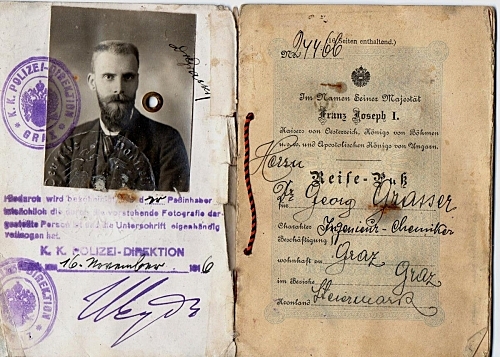 K. K. POLIZEI-DIREKTION
GRAZ
Hiedurch wird bestätigt, daß der Paßinhaber
tatsächlich die durch die vorstehende Fotografie dar-
gestellte Person ist und die Unterschrift eigenhändig
vollzogen hat.
K. K. POLIZEI-DIREKTION
16. November 1916
DIREKTION
(16 Seiten enthaltend.)
No 24466
Im Namen Seiner Majestät
Franz Joseph I.
Kaisers von Oesterreich, Königs von Böhmen
u. s. w. und Apostolischen Königs von Ungarn.
Herrn
Reise-Paß
für Dr Georg Grasser
Charakter Ingenieur-Chemiker
Beschäftigung
wohnhaft zu Graz
im Bezirke Graz
Kronland Steiermark